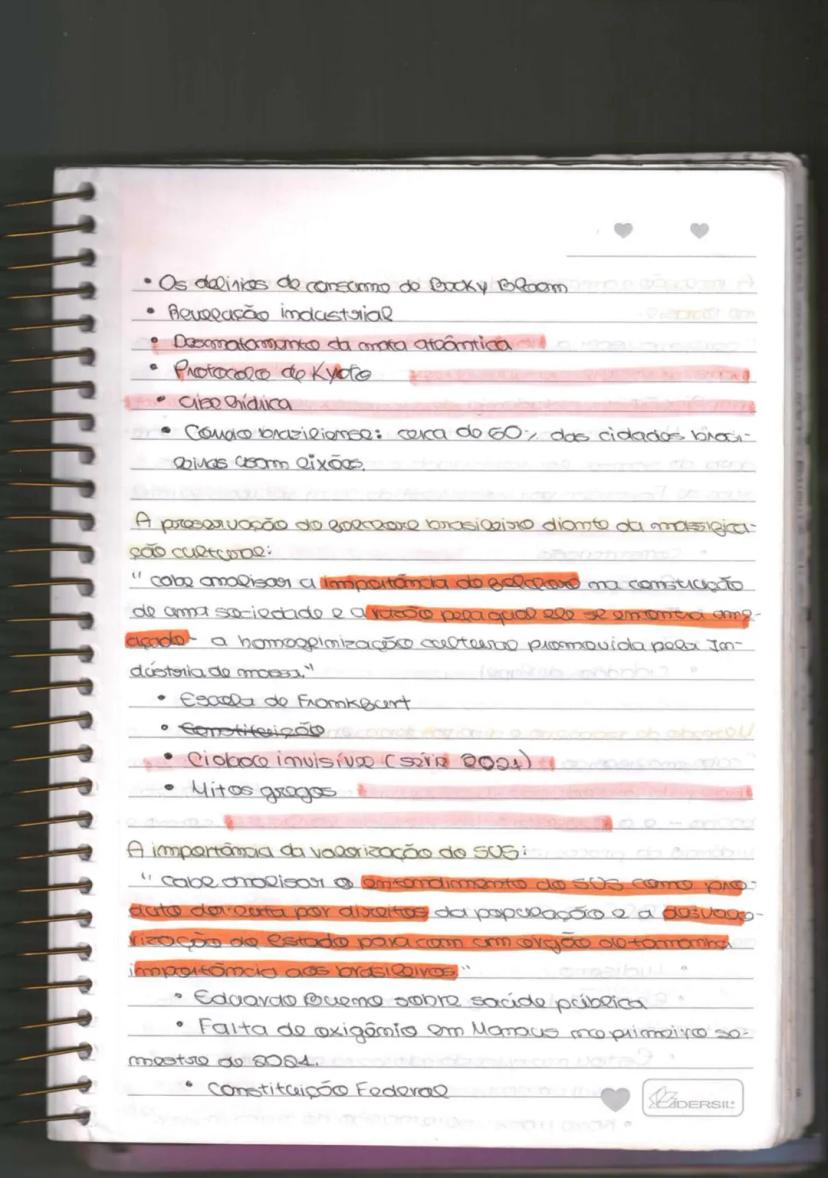 • Os delírios de consumo de Becky Bloom
• Revolução industrial
• Desmatamento da mata atlântica
• Protocolo de Kyoto
• Cibe hídrica
• Cenário brasiliense: cerca de 60% das cidades brasi-
leiras usam lixões.
A preservação do folclore brasileiro diante da massifica-
ção cultural:
" cabe analisar a importância do folclore na construção
de uma sociedade e a razão pela qual ele se encontra ame-
açado - a homogeinização cultural promovida pela In-
dústria de massa."
• Escola de Frankfurt
• Constituição
• Cidade invisível (série 2021)
• Mitos gregos
A importância da valorização do SUS:
" cabe analisar o entendimento do SUS como pro-
duto da luta por direitos da população e a desvalo-
rização do Estado para com um orgão de tamanha
importância aos brasileiros"
• Eduardo Bueno sobre saúde pública
• Falta de oxigênio em Manaus no primeiro se-
mestre de 2021.
• Constituição Federal
LIDERSIL